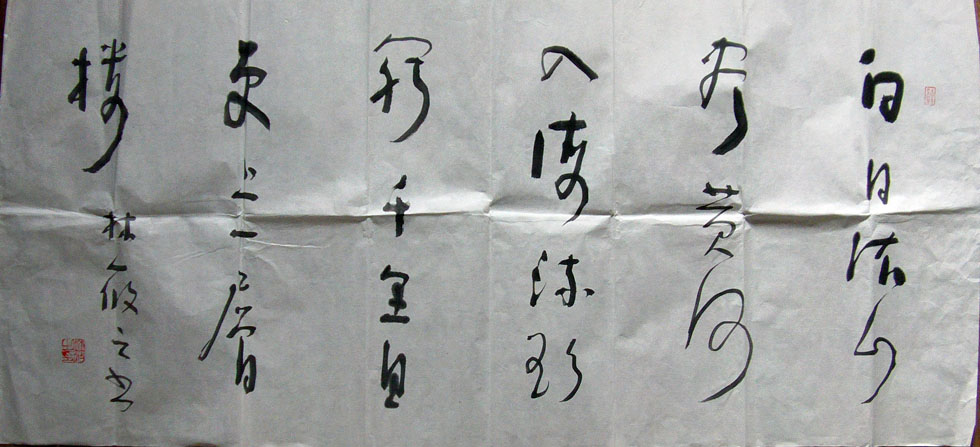 白日依山
盡黄河
入海流欲
窮千里目
更上一層
樓 林筱之书